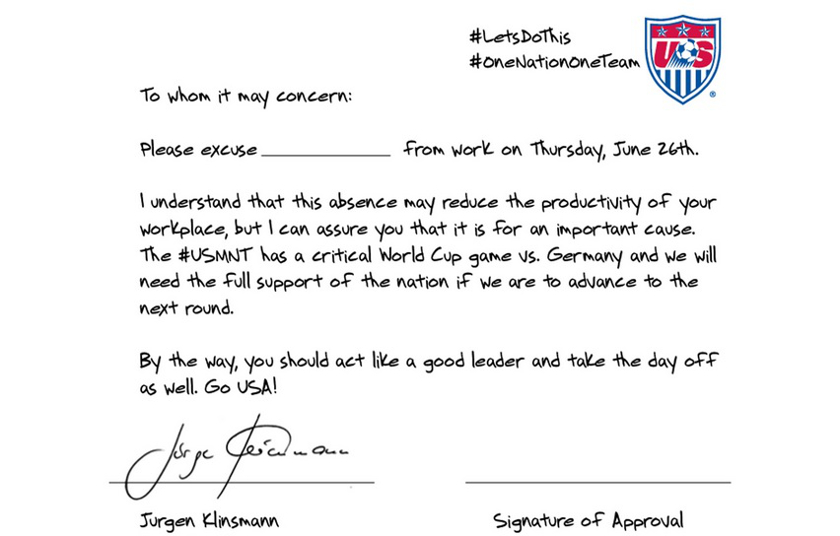 #LetsDoThis
#OneNationOneTeam
US
®
To whom it may concern:
Please excuse from work on Thursday, June 26th.
I understand that this absence may reduce the productivity of your
workplace, but I can assure you that it is for an important cause.
The #USMNT has a critical World Cup game vs. Germany and we will
need the full support of the nation if we are to advance to the
next round.
By the way, you should act like a good leader and take the day off
as well. Go USA!
Jurgen Klinsmann
Signature of Approval